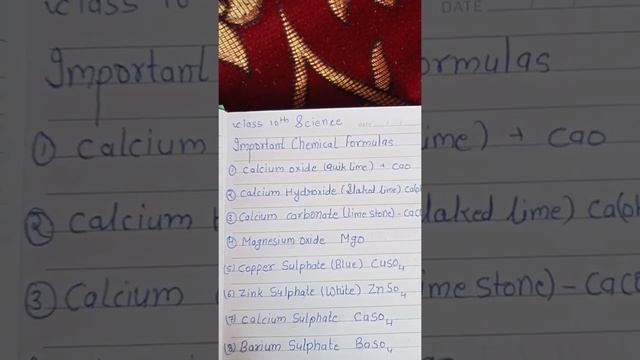 Class 10th Science
DATE
Important Chemical Formulas
① Calcium oxide (Quik lime) + CaO
② Calcium Hydroxide (Slaked lime) Ca(oh
③ Calcium carbonate (lime stone) - CaCO
④ Magnesium oxide MgO
(5) Copper Sulphate (Blue) CuSO4
(6) Zink Sulphate (White) ZnSO4
(7) Calcium Sulphate CaSO4
(8) Barium Sulphate BaSO4